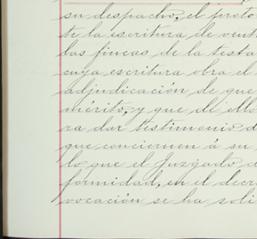 su despacho, el proto
te la escritura de vent
las fincas de la testa
cuya escritura obra el
adjudicación de que
mérito, y que de ello
ra dar testimonio d
que conciernen á su
lo que el Juzgado d
formidad, en el decre
vocación se ha soli